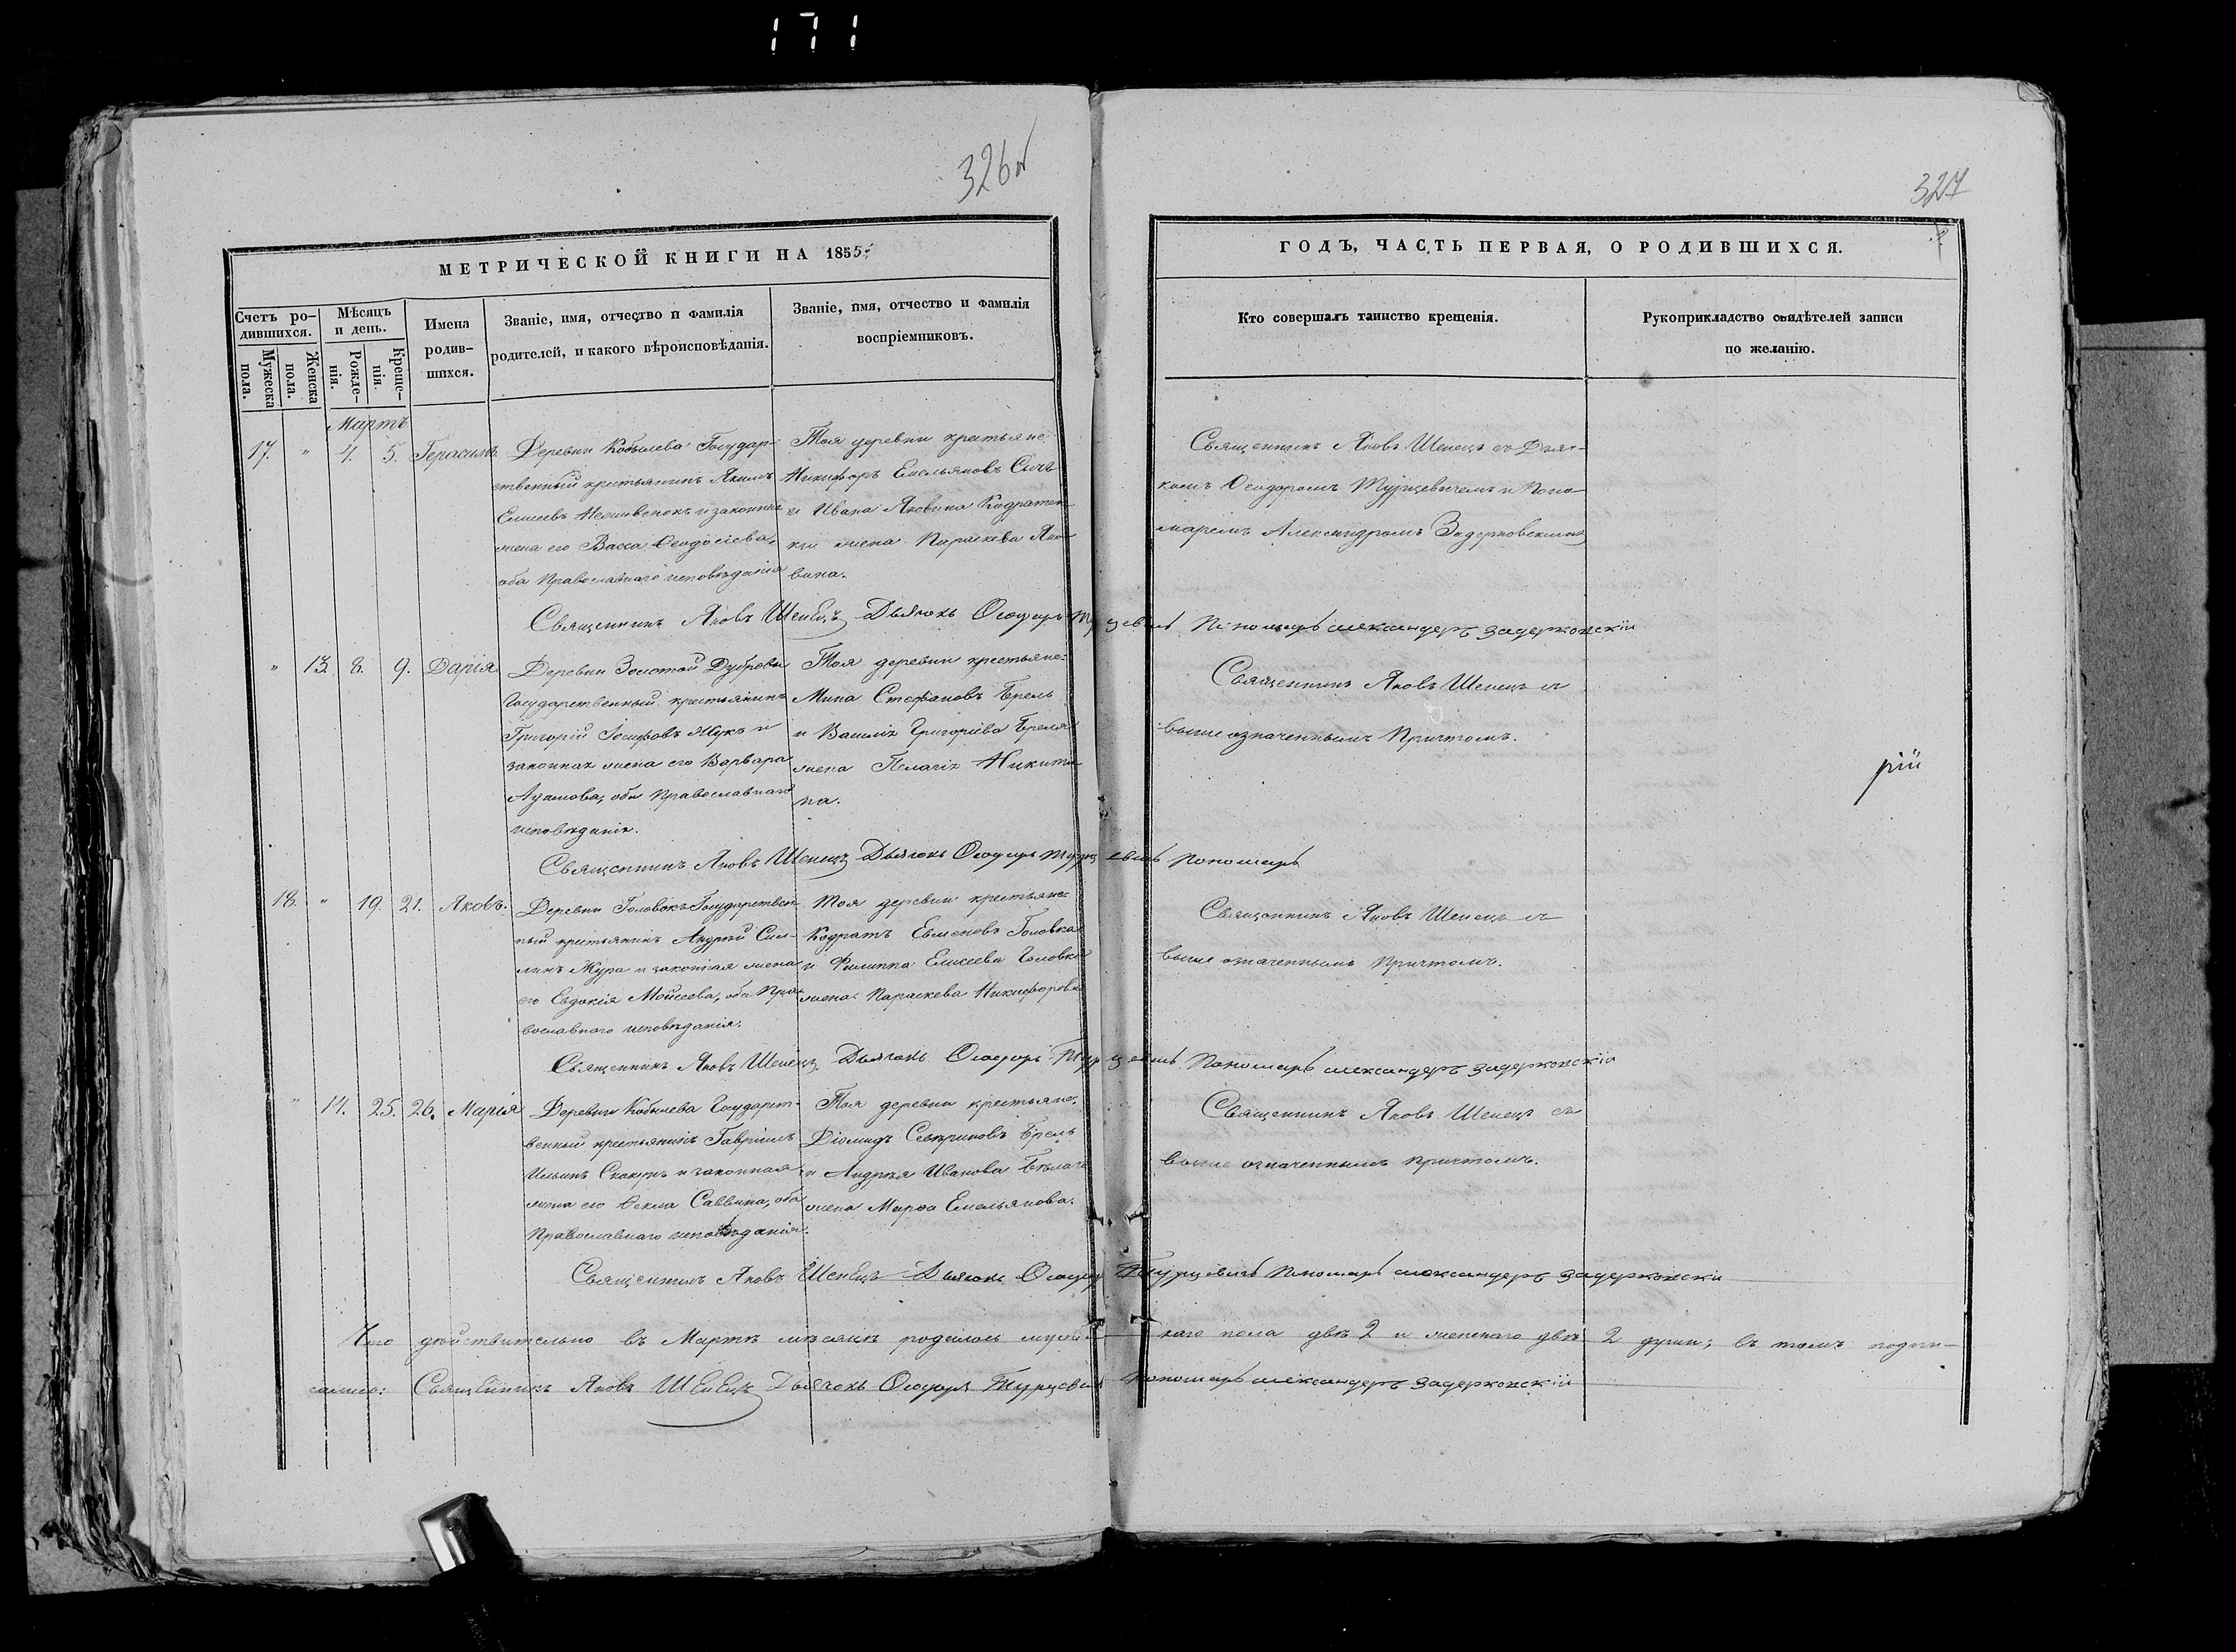 171
326
327
МЕТРИЧЕСКОЙ КНИГИ НА 1855
ГОДЪ, ЧАСТЬ ПЕРВАЯ, О РОДИВШИХСЯ.
Счетъ ро-
дившихся.
Мужеска
пола.
Женска
пола.
Мѣсяцъ
и день.
Рожде-
нія.
Креще-
нія.
Имена
родив-
шихся.
Званіе, имя, отчество и фамилія
родителей, и какого вѣроисповѣданія.
Званіе, имя, отчество и фамилія
воспріемниковъ.
Кто совершалъ таинство крещенія.
Рукоприкладство свидѣтелей записи
по желанію.
Мартъ
17. " 4. 5. Герасимъ
Деревни Кобылева Государ-
ственный крестьянинъ Якимъ
Елисеевъ и законная
жена его Васса Ѳеодосіева,
оба Православнаго исповѣданія
Тоя деревни крестьяне:
Никифоръ Емельяновъ Сычъ
и Ивана Яковина Кодратен
ки жена Параскева Яко
вина.
Священникъ Яковъ Шепецъ съ Дьяч-
комъ Ѳеодоромъ Турцевичемъ и Поно
маремъ Александромъ Задерковскимъ
Священникъ Яковъ Шепецъ Дьячокъ Ѳеодоръ Турцевичъ Пономарь александеръ задерковскій
" 13. 8. 9. Дарія
Деревни Золотой Дубровы
Государственный крестьянинъ
Григорій Іосифовъ Жукъ и
законная жена его Варвара
Адамова, оба Православнаго
исповѣданія.
Тоя деревни крестьяне:
Мина Стефановъ Брель
и Василія Григоріева Бреля
жена Пелагія Никити
на.
Священникъ Яковъ Шепецъ съ
выше означеннымъ Причтомъ.
рій
Священникъ Яковъ Шепецъ Дьячокъ Ѳеодоръ Турцевичъ Пономарь
18. " 19. 21. Яковъ.
Деревни Головокъ Государствен-
ный крестьянинъ Андрей Сам-
линъ Жура и законная жена
его Евдокія Мойсеева, оба Пра
вославнаго исповѣданія.
Тоя деревни крестьяне:
Кодратъ Евменовъ Головка
и Филиппа Елисеева Головки
жена Параскева Никифорова
Священникъ Яковъ Шепецъ съ
выше означеннымъ Причтомъ.
Священникъ Яковъ Шепецъ Дьячокъ Ѳеодоръ Турцевичъ Пономарь александеръ задерковскій
" 14. 25. 26. Марія
Деревни Кобылева Государст-
венный крестьянинъ Гавріилъ
Ильинъ Скакунъ и законная
жена его Ѳекла Саввина, оба
Православнаго исповѣданія.
Тоя деревни крестьяне:
Діомидъ Севериновъ Брель
и Андрея Иванова
жена Марѳа Емельянова.
Священникъ Яковъ Шепецъ съ
выше означеннымъ причтомъ.
Священникъ Яковъ Шепецъ Дьячокъ Ѳеодоръ Турцевичъ Пономарь александеръ задерковски
Что дѣйствительно въ Мартѣ мѣсяцѣ родилось мужес-каго пола двѣ 2 и женскаго двѣ 2 души; въ томъ подпи-
сались: Священникъ Яковъ Шепецъ Дьячокъ Ѳеодоръ Турцевичъ Пономарь александеръ задерковскій